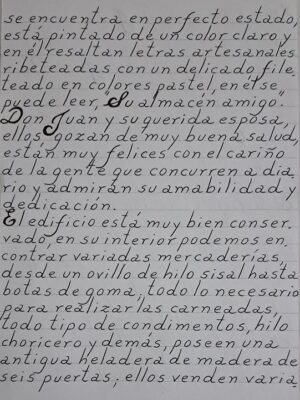 se encuentra en perfecto estado,
está pintado de un color claro y
en él resaltan letras artesanales
ribeteadas con un delicado file,
teado en colores pastel, en él se
puede leer, "Su almacén amigo".
Don Juan y su querida esposa,
ellos gozan de muy buena salud,
están muy felices con el cariño
de la gente que concurren a dia,
rio y admiran su amabilidad y
dedicación.
El edificio está muy bien conser,
vado, en su interior podemos en,
contrar variadas mercaderías,
desde un ovillo de hilo sisal hasta
botas de goma, todo lo necesario
para realizar las carneadas,
todo tipo de condimentos, hilo
choricero y demás, poseen una
antigua heladera de madera de
seis puertas; ellos venden varia,